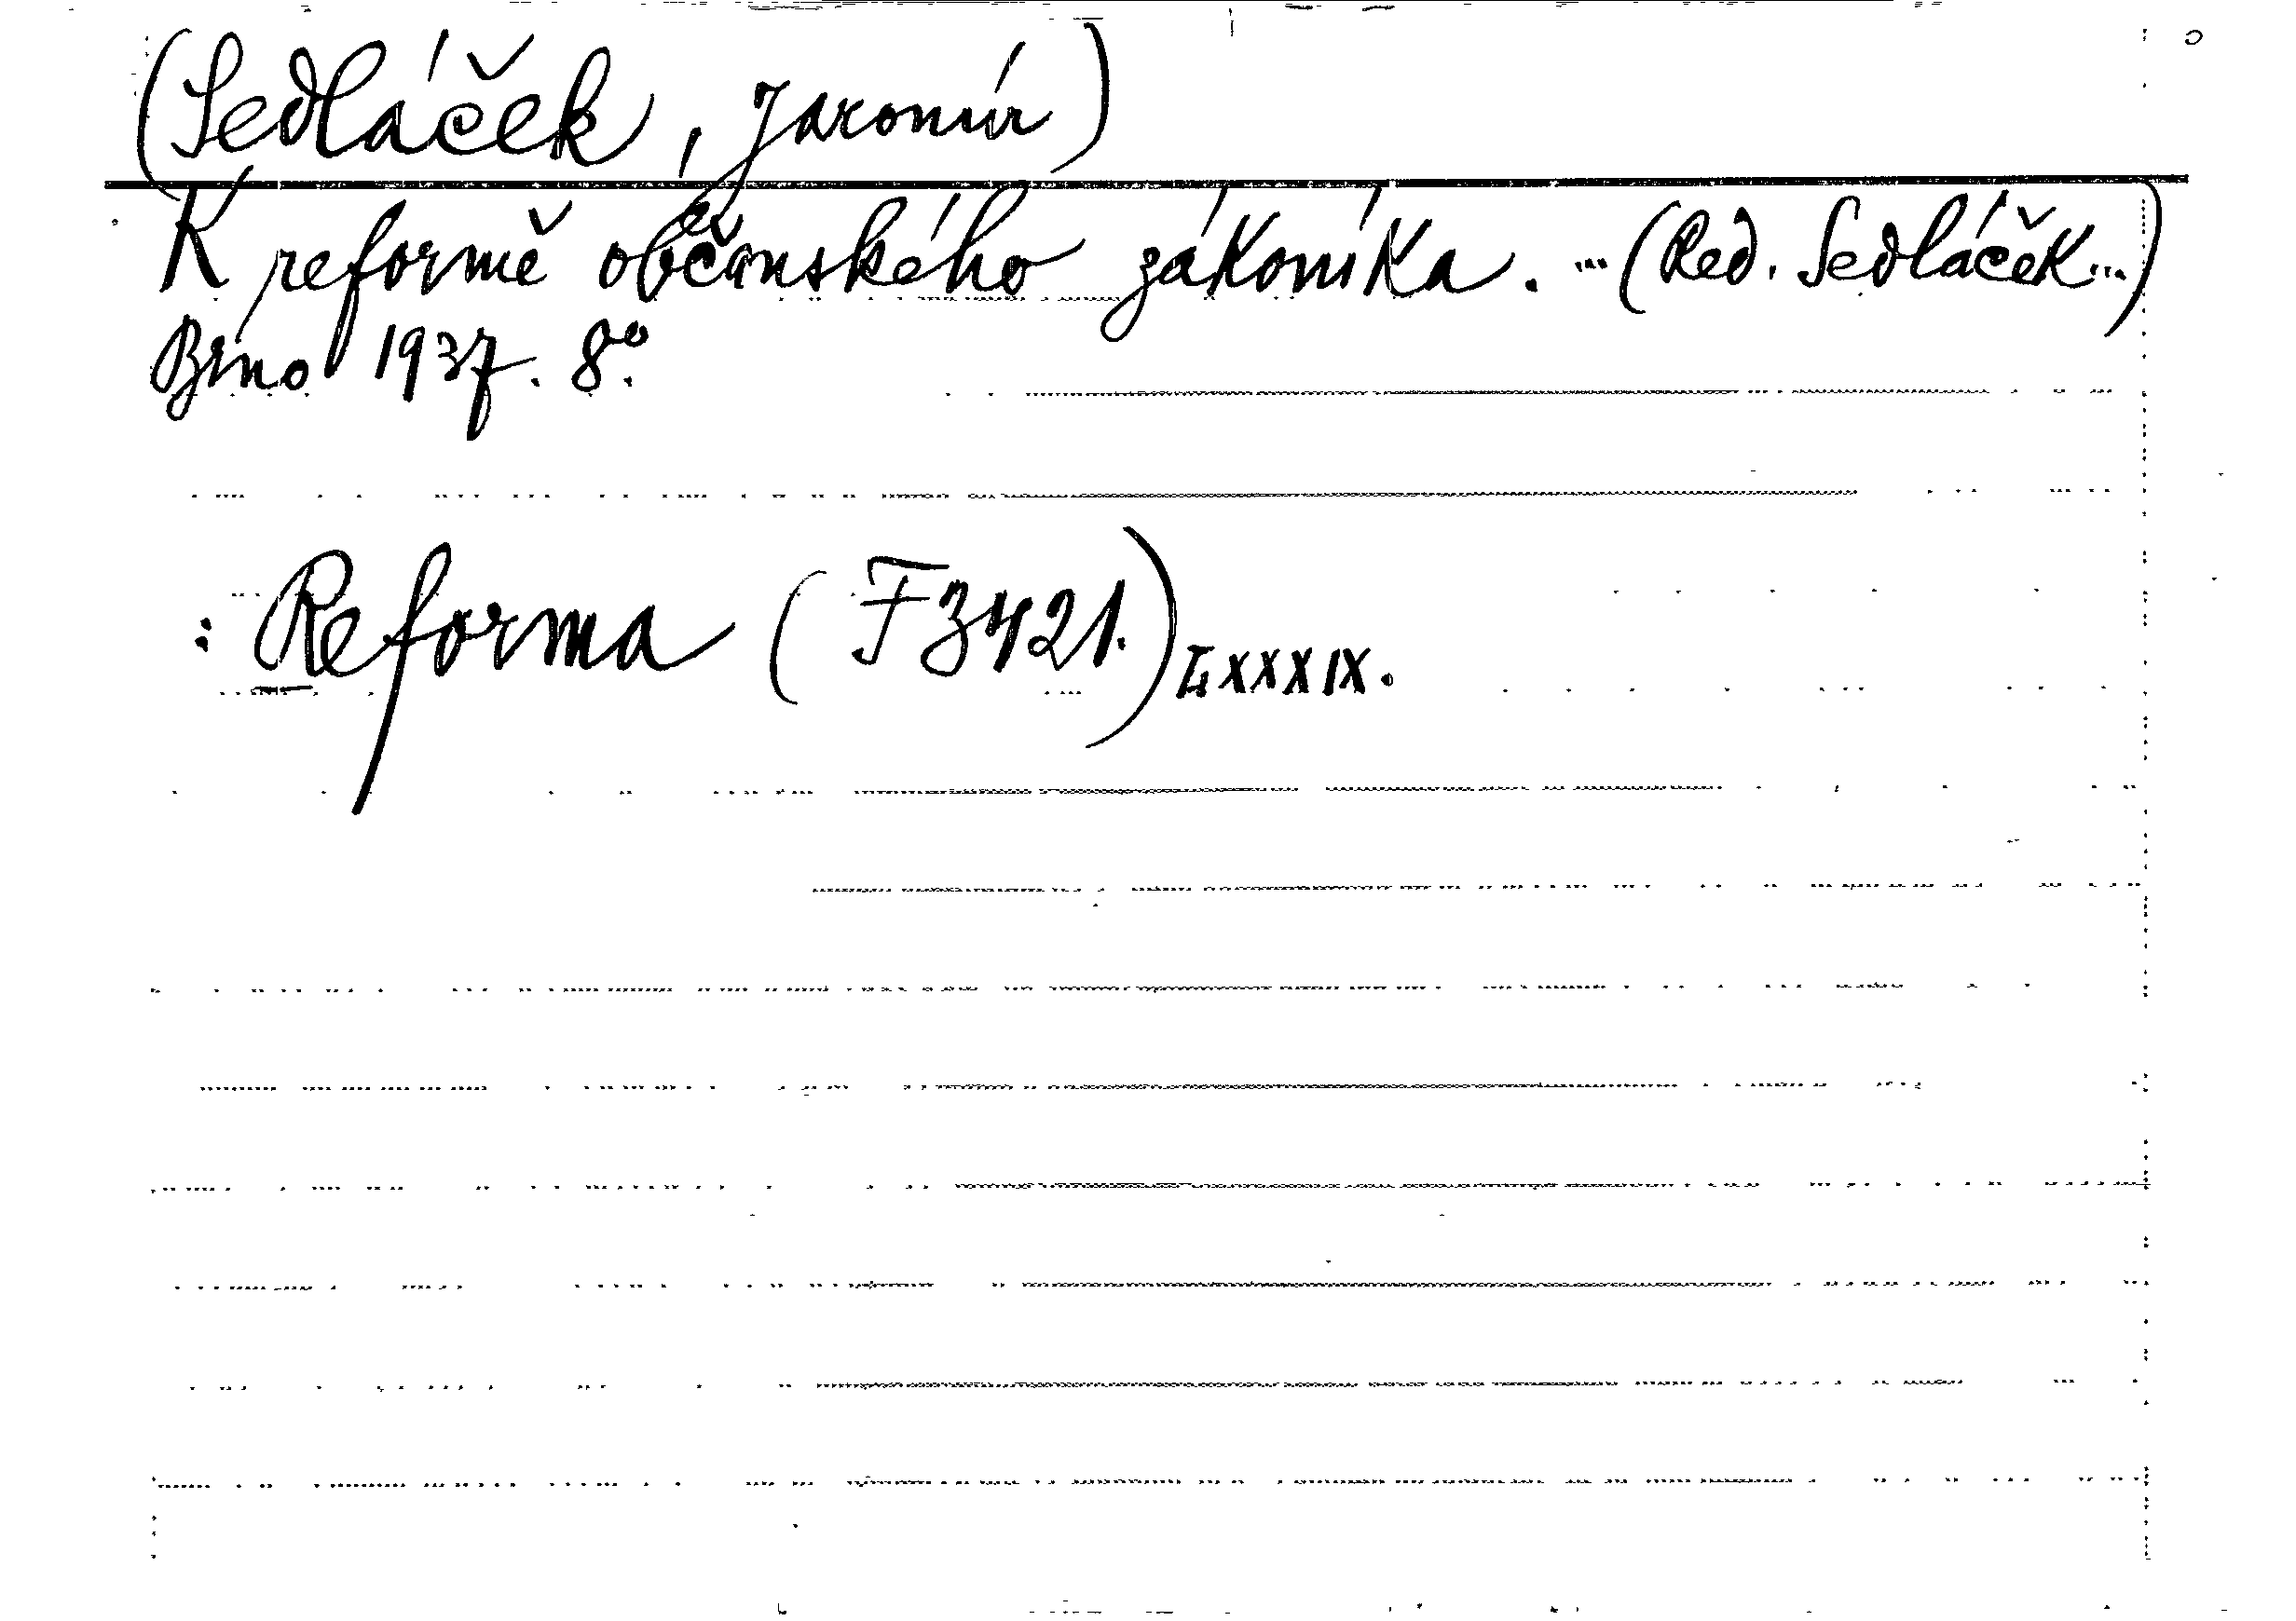 (Sedláček, Jaromír)
K reformě občanského zákoníka. ... (Red. Sedláček...)
Brno 1937. 8°.
: Reforma (F 3421.) LXXXIX.